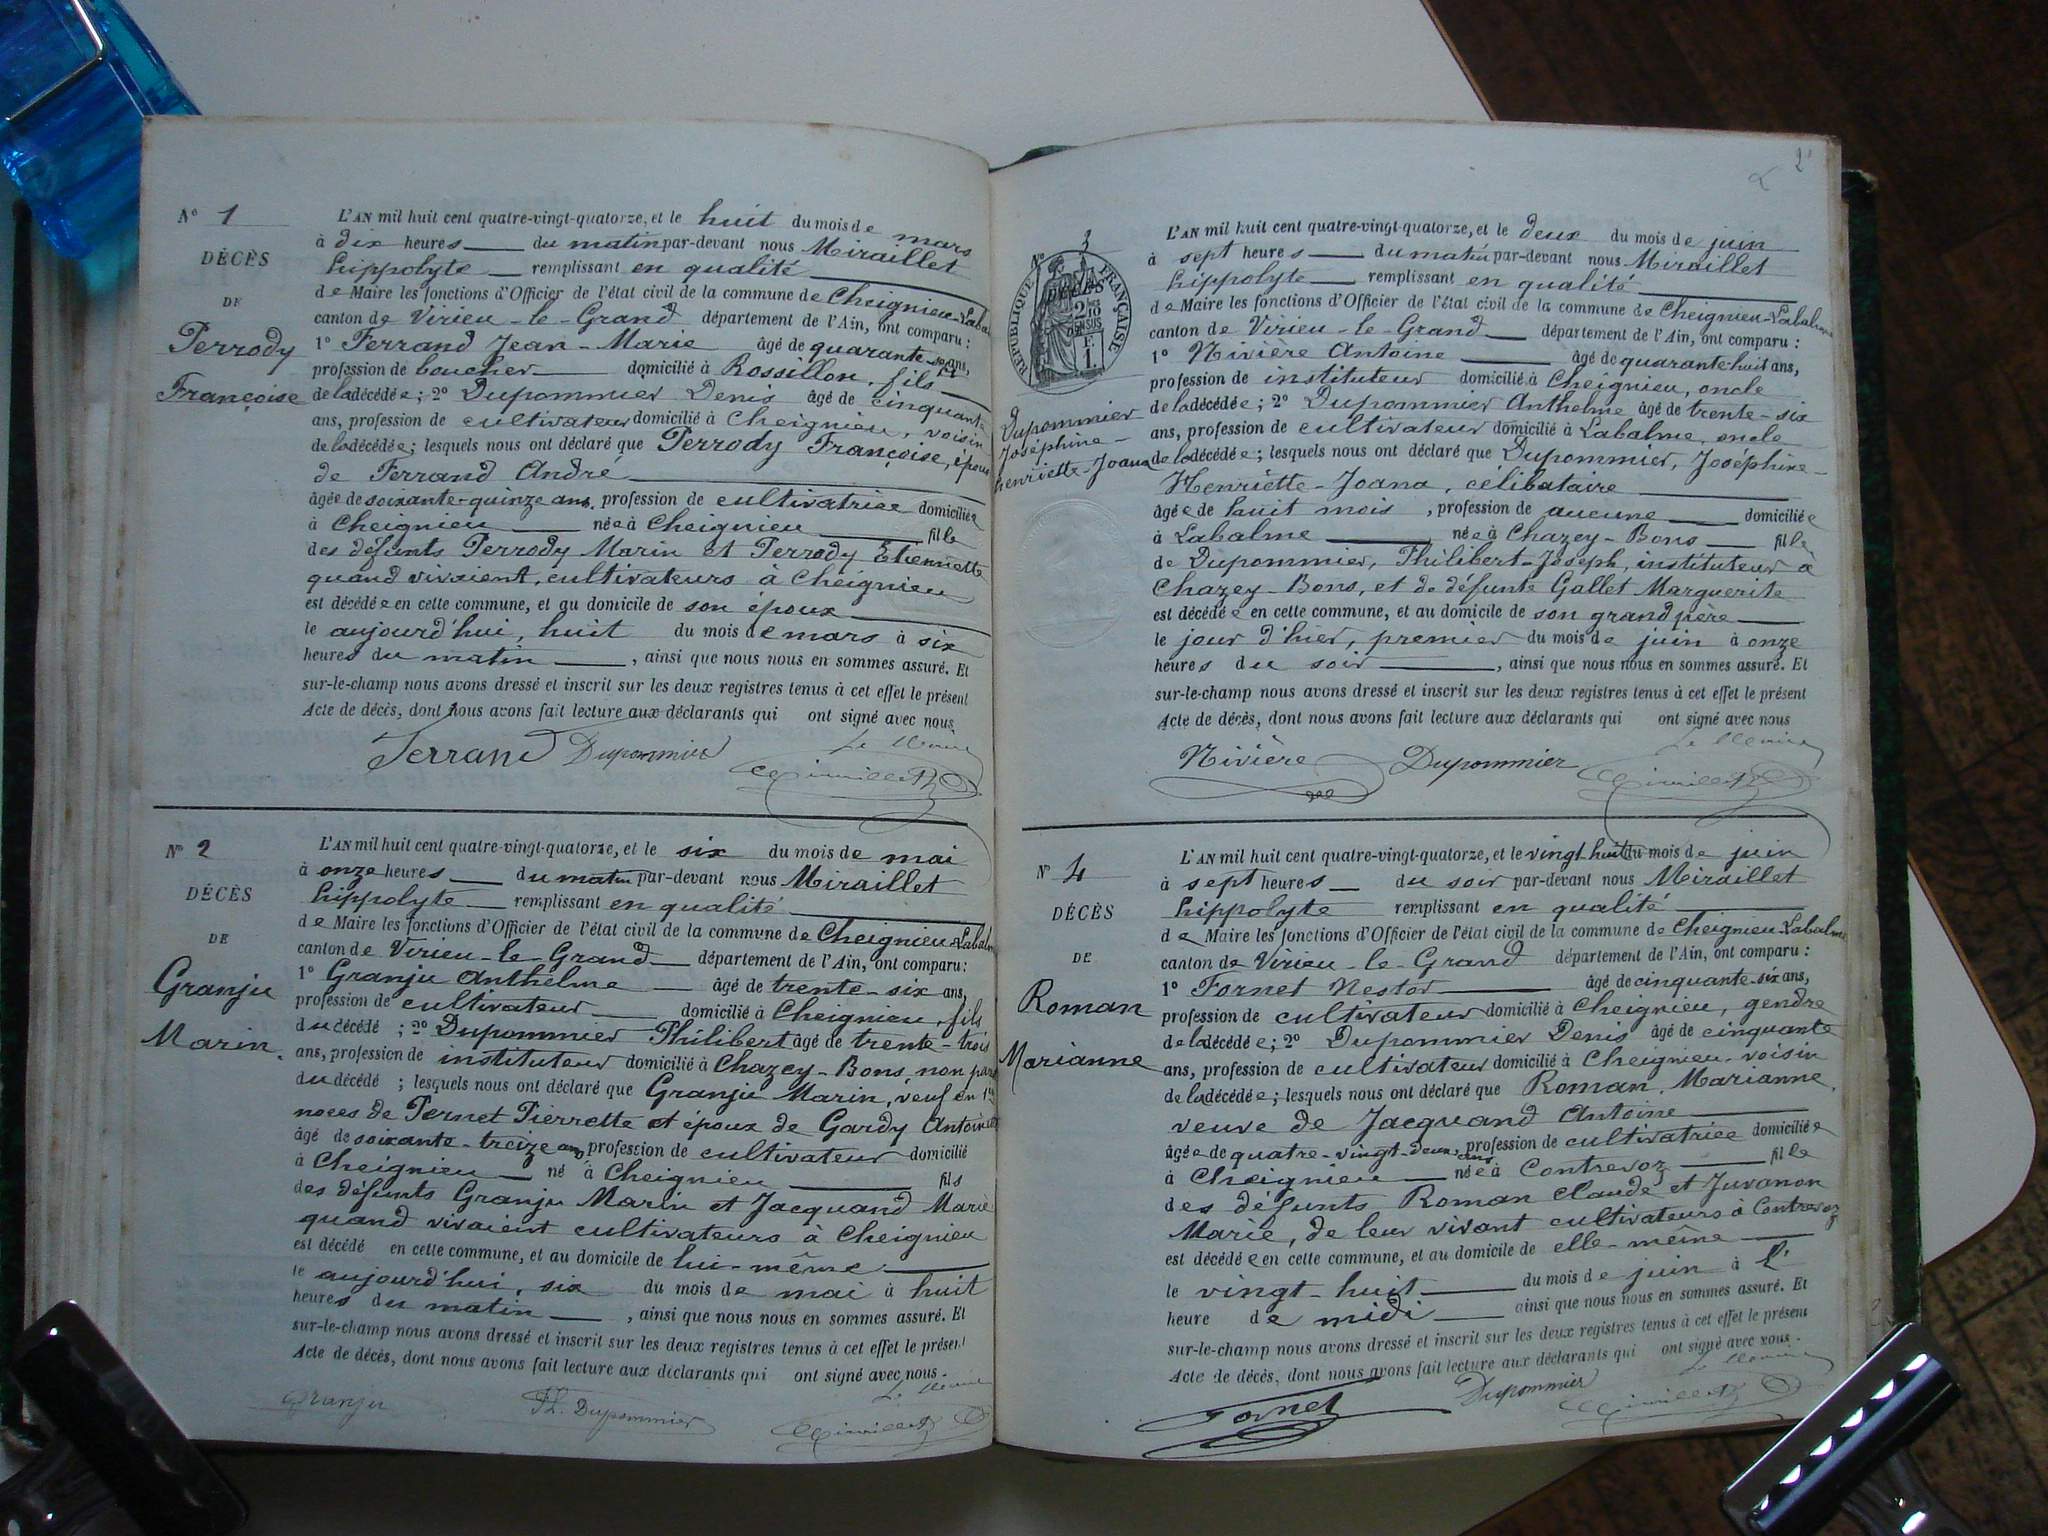 N° 1
DÉCÈS
DE
Perrody
Françoise
L'AN mil huit cent quatre-vingt-quatorze, et le huit du mois de mars
à dix heures du matin par-devant nous Miraillet
hippolyte remplissant en qualité
de Maire les fonctions d'Officier de l'état civil de la commune de Cheignieu-Labal
canton de Virieu-le-Grand département de l'Ain, ont comparu :
1° Ferrand Jean-Marie âgé de quarante-sept ans,
profession de boucher domicilié à Rossillon, fils
de la décédée ; 2° Dupommier Denis âgé de cinquante
ans, profession de cultivateur domicilié à Cheignieu, voisin
de la décédée ; lesquels nous ont déclaré que Perrody Françoise, épouse
de Ferrand André
âgée de soixante-quinze ans, profession de cultivatrice domiciliée
à Cheignieu née à Cheignieu fille
des défunts Perrody Marin et Perrody Etiennette
quand vivaient, cultivateurs à Cheignieu
est décédée en cette commune, et au domicile de son époux
le aujourd'hui, huit du mois de mars à six
heures du matin , ainsi que nous nous en sommes assuré. Et
sur-le-champ nous avons dressé et inscrit sur les deux registres tenus à cet effet le présent
Acte de décès, dont nous avons fait lecture aux déclarants qui ont signé avec nous
Le Maire
Ferrand Dupommier Miraillet
N° 2
DÉCÈS
DE
Granju
Marin.
L'AN mil huit cent quatre-vingt-quatorze, et le six du mois de mai
à onze heures du matin par-devant nous Miraillet
hippolyte remplissant en qualité
de Maire les fonctions d'Officier de l'état civil de la commune de Cheignieu-Labalm
canton de Virieu-le-Grand département de l'Ain, ont comparu :
1° Granju Anthelme âgé de trente-six ans,
profession de cultivateur domicilié à Cheignieu, fils
du décédé ; 2° Dupommier Philibert âgé de trente-trois
ans, profession de instituteur domicilié à Chazey-Bons, non par
du décédé ; lesquels nous ont déclaré que Granju Marin, veuf en 1res
noces de Pernet Pierrette et époux de Gardy Antoinette
âgé de soixante-treize ans profession de cultivateur domicilié
à Cheignieu né à Cheignieu fils
des défunts Granju Marin et Jacquand Marie
quand vivaient cultivateurs à Cheignieu
est décédé en cette commune, et au domicile de lui-même
le aujourd'hui, six du mois de mai à huit
heures du matin , ainsi que nous nous en sommes assuré. Et
sur-le-champ nous avons dressé et inscrit sur les deux registres tenus à cet effet le présent
Acte de décès, dont nous avons fait lecture aux déclarants qui ont signé avec nous.
Le Maire
Granju Ph. Dupommier Miraillet
2
N° 3
DÉCÈS
RÉPUBLIQUE FRANÇAISE
2/10 EN SUS
1 F.
Dupommier
Joséphine-
henriette-Joana
L'AN mil huit cent quatre-vingt-quatorze, et le deux du mois de juin
à sept heures du matin par-devant nous Miraillet
hippolyte remplissant en qualité
de Maire les fonctions d'Officier de l'état civil de la commune de Cheignieu-Labalme
canton de Virieu-le-Grand département de l'Ain, ont comparu :
1° Nivière Antoine âgé de quarante-huit ans,
profession de instituteur domicilié à Cheignieu, oncle
de la décédée ; 2° Dupommier Anthelme âgé de trente-six
ans, profession de cultivateur domicilié à Labalme, oncle
de la décédée ; lesquels nous ont déclaré que Dupommier, Joséphine-
Henriette-Joana, célibataire
âgée de huit mois , profession de aucune domiciliée
à Labalme née à Chazey-Bons fille
de Dupommier, Philibert-Joseph, instituteur à
Chazey-Bons, et de défunte Gallet Marguerite
est décédée en cette commune, et au domicile de son grand père
le jour d'hier, premier du mois de juin à onze
heures du soir , ainsi que nous nous en sommes assuré. Et
sur-le-champ nous avons dressé et inscrit sur les deux registres tenus à cet effet le présent
Acte de décès, dont nous avons fait lecture aux déclarants qui ont signé avec nous
Le Maire
Nivière Dupommier Miraillet
N° 4
DÉCÈS
DE
Roman
Marianne
L'AN mil huit cent quatre-vingt-quatorze, et le vingt-huit du mois de juin
à sept heures du soir par-devant nous Miraillet
hippolyte remplissant en qualité
de Maire les fonctions d'Officier de l'état civil de la commune de Cheignieu-Labalme
canton de Virieu-le-Grand département de l'Ain, ont comparu :
1° Fornet Nestor âgé de cinquante-six ans,
profession de cultivateur domicilié à Cheignieu, gendre
de la décédée ; 2° Dupommier Denis âgé de cinquante
ans, profession de cultivateur domicilié à Cheignieu-voisin
de la décédée ; lesquels nous ont déclaré que Roman, Marianne,
veuve de Jacquand Antoine
âgée de quatre-vingt-deux ans profession de cultivatrice domiciliée
à Cheignieu née à Contrevoz fille
des défunts Roman Claude et Juvanon
Marie, de leur vivant cultivateurs à Contrevoz
est décédée en cette commune, et au domicile de elle-même
le vingt-huit du mois de juin à l'
heure de midi ainsi que nous nous en sommes assuré. Et
sur-le-champ nous avons dressé et inscrit sur les deux registres tenus à cet effet le présent
Acte de décès, dont nous avons fait lecture aux déclarants qui ont signé avec nous.
Le Maire
Fornet Dupommier Miraillet